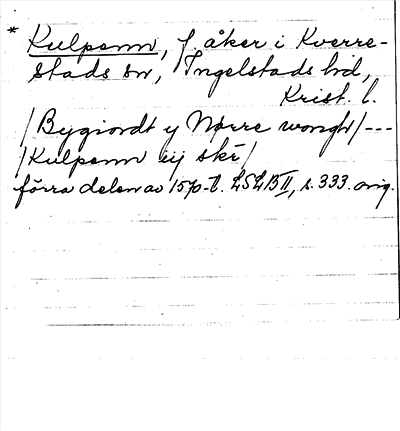 * Kulpenn, f. åker i Kverre-
stads sn, Ingelstads hd,
Krist. l.
/Bygiordt y Nørre wongh/---
/Kulpenn iij skr/
förra delen av 1570-t. LSLB II, s. 333. orig.